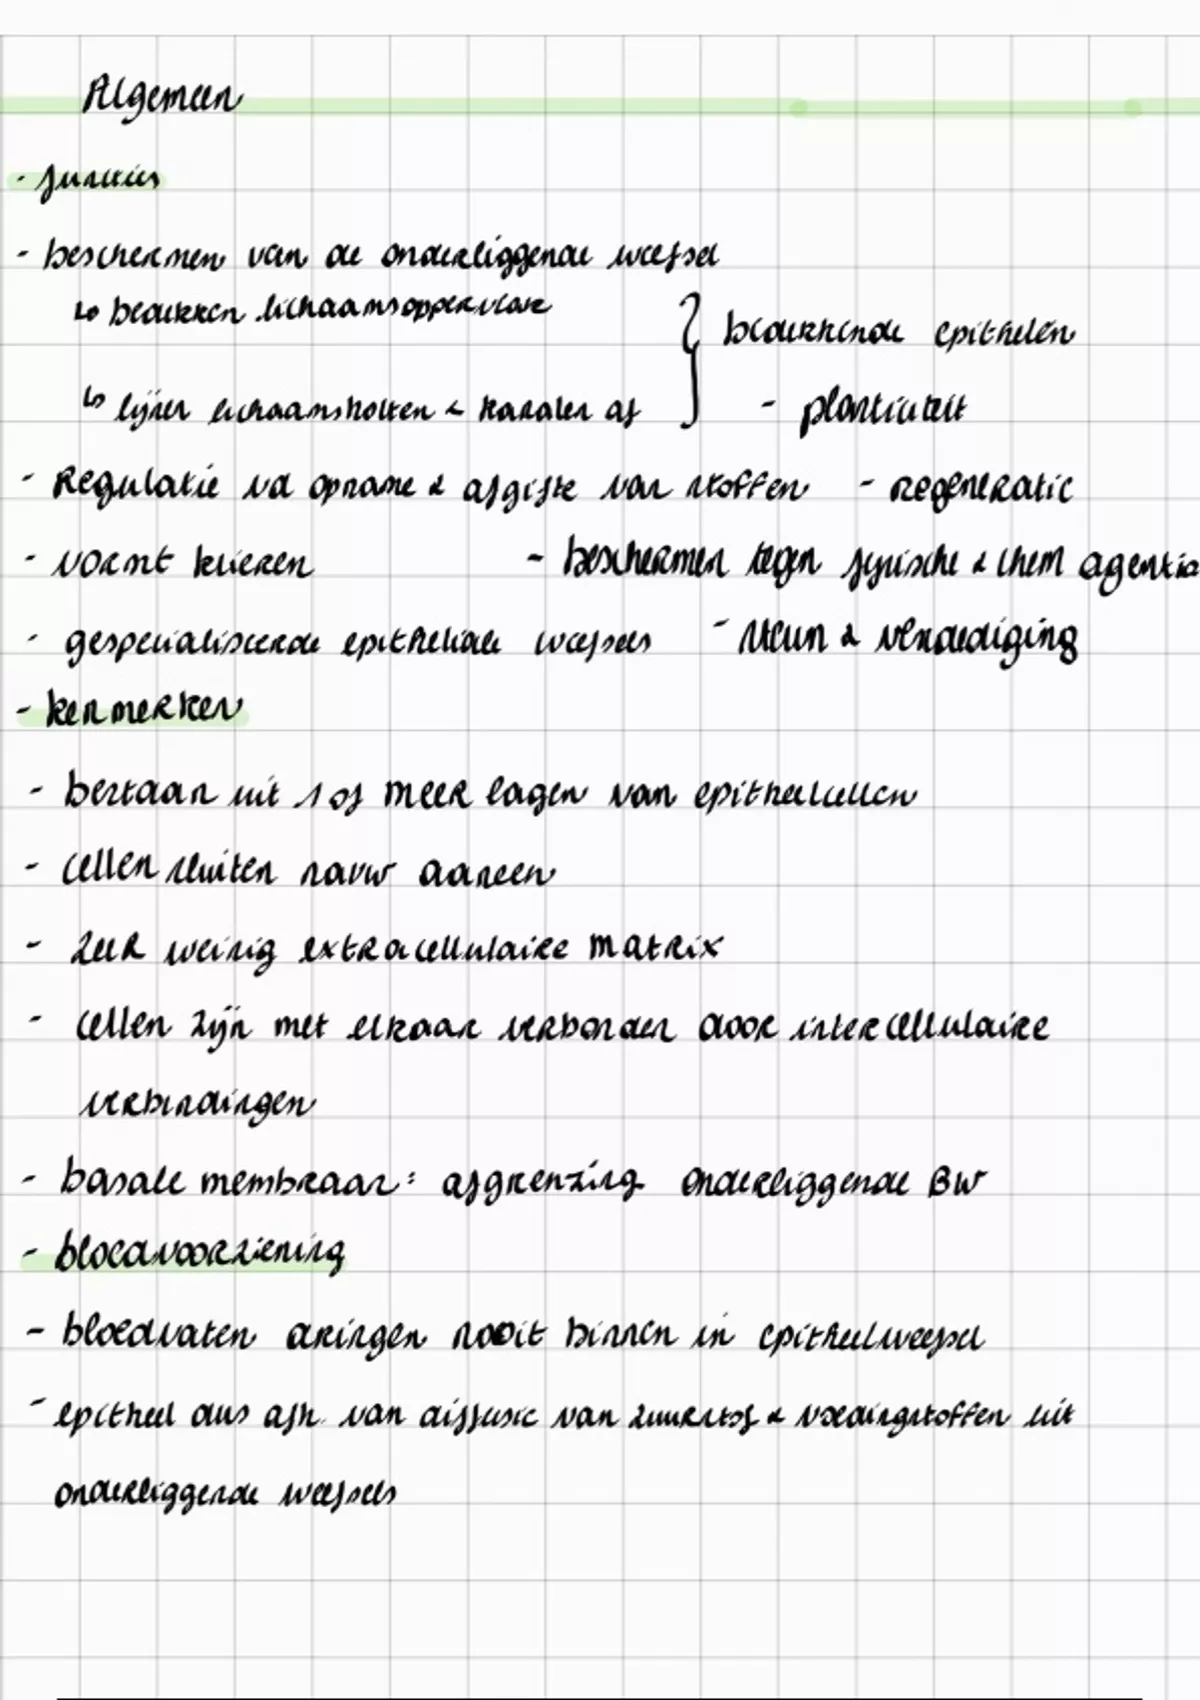 Algemeen
- functies
- beschermen van de onderliggende weefsel
↳ bedekken lichaamsoppervlak
} bedekkende epithelen
↳ lijnen lichaamsholten & kanalen af
- plasticiteit
- Regulatie vd opname & afgifte van stoffen - regeneratie
- vormt klieren - beschermen tegen fysische & chem agentia
- gespecialiseerde epitheliale weefsels - steun & verdediging
- kenmerken
- bestaan uit 1 of meer lagen van epitheelcellen
- cellen sluiten nauw aaneen
- zeer weinig extracellulaire matrix
- cellen zijn met elkaar verbonden door intercellulaire
verbindingen
- basale membraan: afgrenzing onderliggende BW
- bloedvoorziening
- bloedvaten dringen nooit binnen in epitheelweefsel
- epitheel dus afh. van diffusie van zuurstof & voedingstoffen uit
onderliggende weefsels